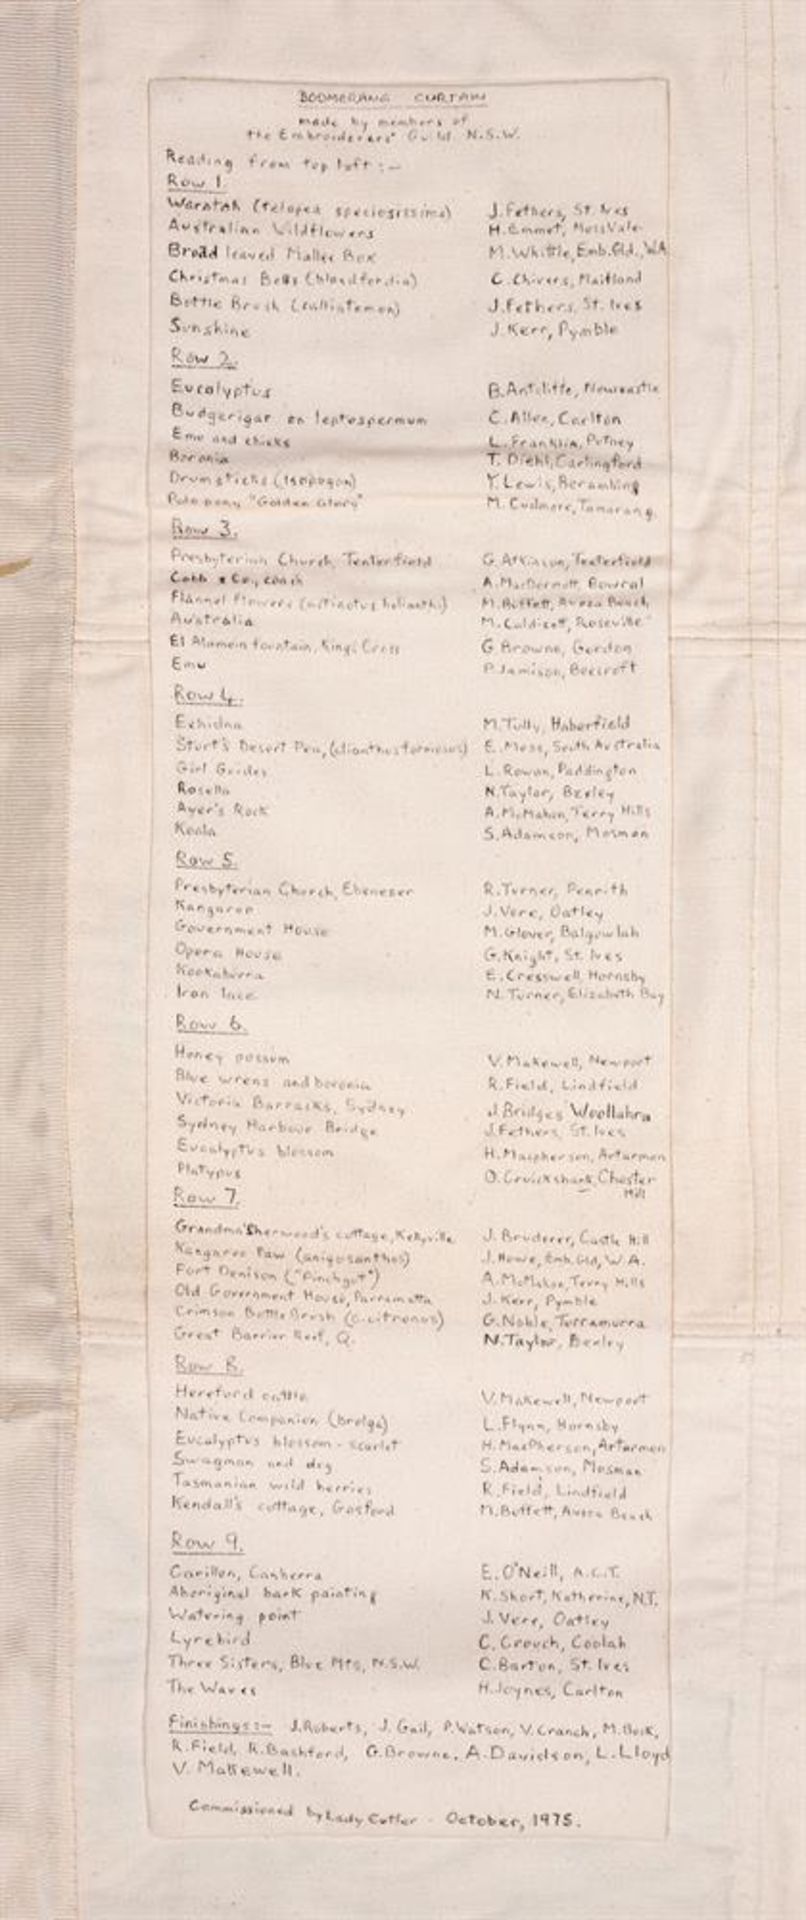 BOOMERANG CURTAIN
made by members of
the Embroiderers' Guild N.S.W.
Reading from top left :-
Row 1.
Waratah (telopea speciosissima) J. Fethers, St. Ives
Australian Wildflowers H. Emmet, MossVale
Broad leaved Mallee Box M. Whittle, Emb. Gld., W.A.
Christmas Bells (blandfordia) C. Chivers, Maitland
Bottle Brush (callistemon) J. Fethers, St. Ives
Sunshine J. Kerr, Pymble
Row 2.
Eucalyptus B. Antcliffe, Newcastle
Budgerigar on leptospermum C. Allen, Carlton
Emu and chicks L. Franklin, Putney
Boronia T. Diehl, Carlingford
Drumsticks (isopogon) Y. Lewis, Berambing
Polo pony "Golden Glory" M. Cudmore, Tamarang.
Row 3.
Presbyterian Church, Tenterfield G. Atkinson, Tenterfield
Cobb & Coy. coach A. MacDermott, Bowral
Flannel flowers (actinotus helianthi) M. Buffett, Avoca Beach
Australia M. Caldicott, Roseville
El Alamein fountain, Kings Cross G. Browne, Gordon
Emu P. Jamison, Beecroft
Row 4.
Echidna M. Tully, Haberfield
Sturt's Desert Pea, (clianthus formosus) E. Moss, South Australia
Girl Guides L. Rowan, Paddington
Rosella N. Taylor, Bexley
Ayer's Rock A. McMahon, Terry Hills
Koala S. Adamson, Mosman
Row 5.
Presbyterian Church, Ebenezer R. Turner, Penrith
Kangaroo J. Vere, Oatley
Government House M. Glover, Balgowlah
Opera House G. Knight, St. Ives
Kookaburra E. Cresswell, Hornsby
Iron lace N. Turner, Elizabeth Bay
Row 6.
Honey possum V. Makewell, Newport
Blue wrens and boronia R. Field, Lindfield
Victoria Barracks, Sydney J. Bridges Woollahra
Sydney Harbour Bridge J. Fethers, St. Ives
Eucalyptus blossom H. Macpherson, Artarmon
Platypus O. Cruickshank, Chester
Hill
Row 7.
Grandma Sherwood's cottage, Kellyville J. Bruderer, Castle Hill
Kangaroo Paw (anigosanthos) J. Howe, Emb. Gld, W.A.
Fort Denison ("Pinchgut") A. McMahon, Terry Hills
Old Government House, Parramatta J. Kerr, Pymble
Crimson Bottle Brush (c. citronus) G. Noble, Turramurra
Great Barrier Reef, Q. N. Taylor, Bexley
Row 8.
Hereford cattle V. Makewell, Newport
Native Companion (Brolga) L. Flynn, Hornsby
Eucalyptus blossom - scarlet H. MacPherson, Artarmon
Swagman and dog S. Adamson, Mosman
Tasmanian wild berries R. Field, Lindfield
Kendall's cottage, Gosford M. Buffett, Avoca Beach
Row 9.
Carillon, Canberra E. O'Neill, A.C.T.
Aboriginal bark painting K. Short, Katherine, N.T.
Watering point J. Vere, Oatley
Lyrebird C. Crouch, Coolah
Three Sisters, Blue Mts, N.S.W. C. Barton, St. Ives
The Waves H. Joynes, Carlton
Finishings :- J. Roberts, J. Gail, P. Watson, V. Cranch, M. Bock,
R. Field, R. Bashford, G. Browne, A. Davidson, L. Lloyd
V. Makewell.
Commissioned by Lady Cutler - October, 1975.